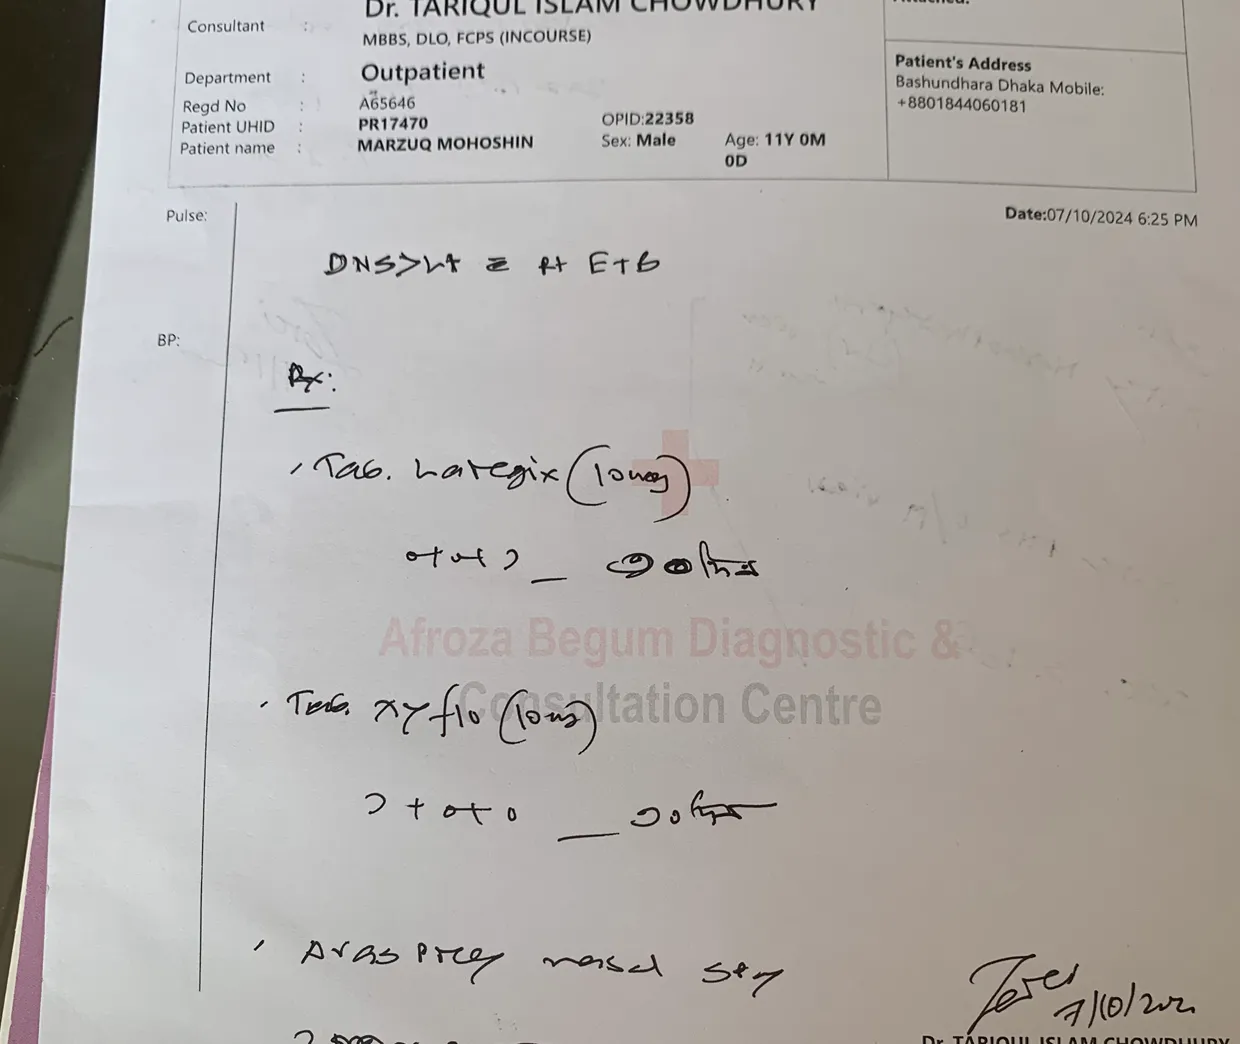 Dr. TARIQUL ISLAM CHOWDHURY
Consultant :
MBBS, DLO, FCPS (INCOURSE)
Department : Outpatient
Regd No : A65646
Patient UHID : PR17470 OPID:22358
Patient name : MARZUQ MOHOSHIN Sex: Male Age: 11Y 0M
0D
Patient's Address
Bashundhara Dhaka Mobile:
+8801844060181
Pulse:
Date:07/10/2024 6:25 PM
DNS>Lt Rt ETB
BP:
Rx:
Tab. (10mg)
০+০+১ _ দিন
Afroza Begum Diagnostic &
Consultation Centre
Tab. xyflo (10mg)
১+০+০ _ ১০ দিন
nasal
7/10/202
Dr. TARIQUL ISLAM CHOWDHURY